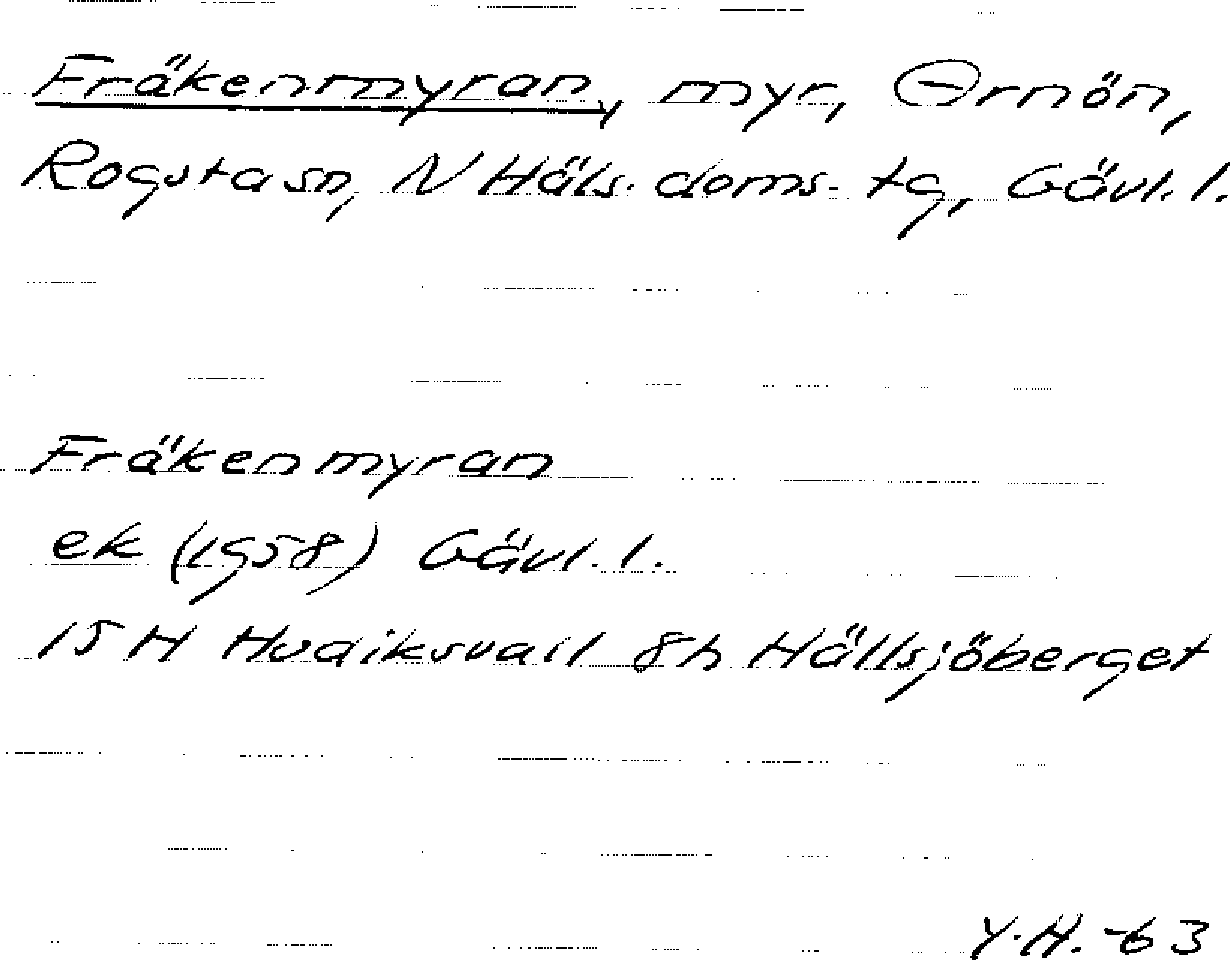 Fräkenmyran, myr, Ornön,
Rogsta sn, N Häls. doms. tg, Gävl. l.
Fräkenmyran
ek (1958) Gävl. l.
15 H Hudiksvall 8h Hällsjöberget
Y.H. -63